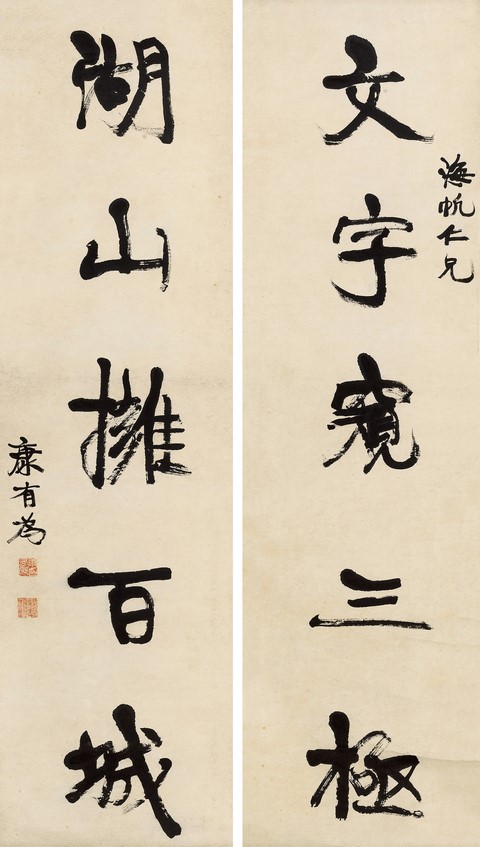 海帆仁兄
文字窺三極
湖山擁百城
康有為